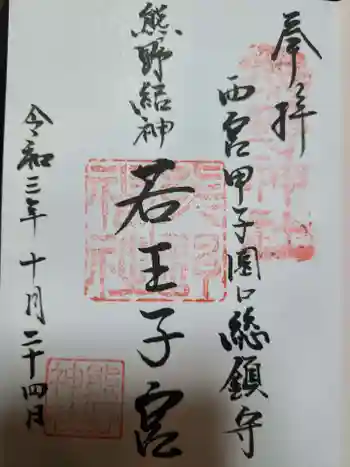 奉拝
西宮甲子園口総鎮守
熊野結神
若王子宮
令和三年 十月二十四日